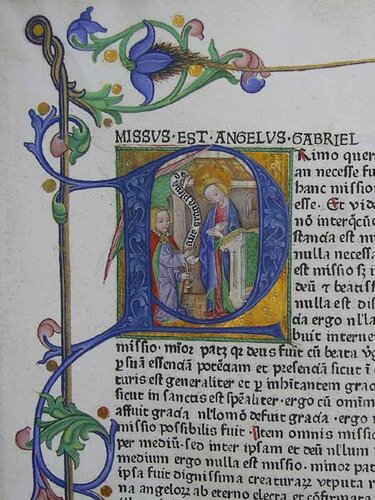 MISSVS · EST · ANGELVS · GABRIEL
Rimo quer
an necesse fu
hanc missio
esse. Et vide
stancia est mi
nulla necessa
est missio
deū & beatiss
nulla est dis
cia ergo nl'la
buit interue
missio. minor patz qr deus fuit cū beata v
p suā essenciā potēciam et presenciā sicut ī c
turis est generaliter et p inhītantem gracia
sicut in sanctis est spāliter. ergo cū omīm
affuit gracia nl'lomō defuit gracia. ergo
missio possibilis fuit. Item omnis missio
per mediū. sed inter ipsam et deū nllum
medium ergo nulla est missio. minor patet
ipsa fuit dignissima creaturaz vtputa r
na angeloz ab eterno electa et confirmata